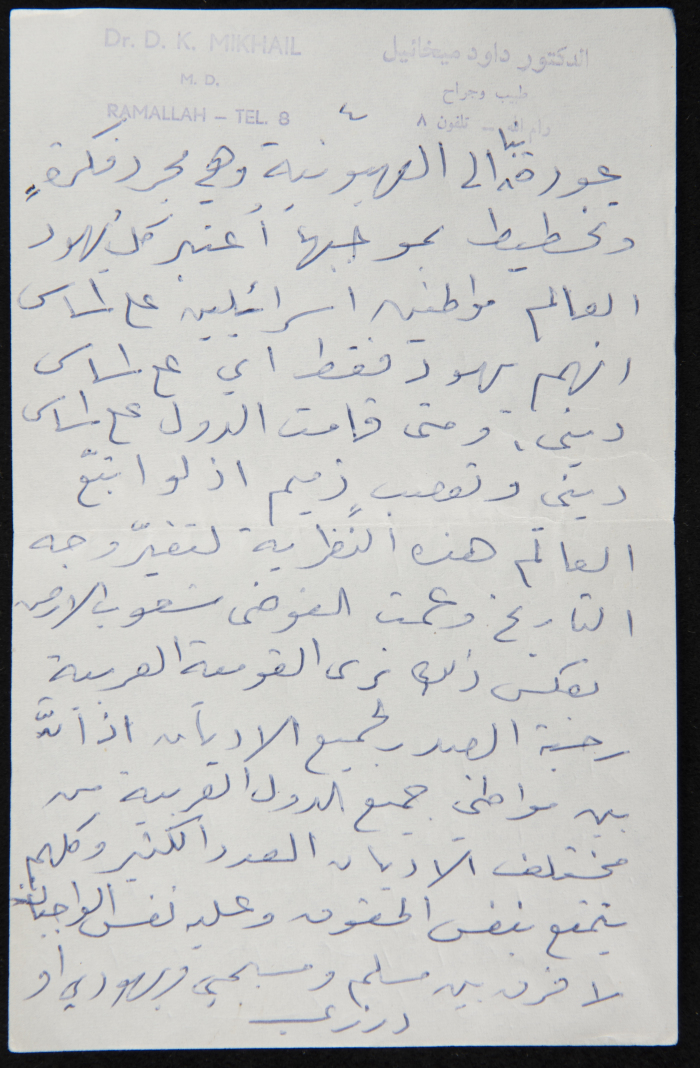 Dr. D. K. MIKHAIL
M. D.
RAMALLAH – TEL. 8
الدكتور داود ميخائيل
طبيب وجراح
رام الله – تلفون ٨
٤
عودة بنا الى الصهيونية وهي مجرد فكرة
وتخطيط بموجبها أعتبر كل يهود
العالم مواطنين اسرائيليين على اساس
انهم يهود فقط اي على اساس
ديني، ومتى قامت الدول على اساس
ديني وتعصب ذميم اذ لو اتبع
العالم هذه النظرية لتغيّر وجه
التاريخ وعمت الفوضى شعوب الارض
بعكس ذلك نرى القومية العربية
رحبة الصدر لجميع الاديان اذ أنّه
بين مواطني جميع الدول العربية من
مختلف الاديان العدد الكثير وكلهم
يتمتع بنفس الحقوق وعليه نفس الواجبات
لا فرق بين مسلم ومسيحي ويهودي او
درزي